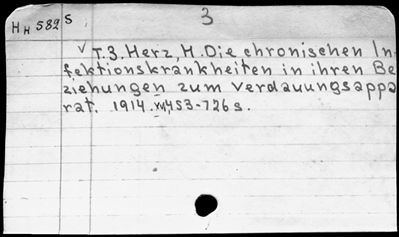 HH 582 S
3
V T.3. Herz, H. Die chronischen In-
fektionskrankheiten in ihren Be
ziehungen zum Verdauungsappa
rat. 1914. XVI,453-726 s.